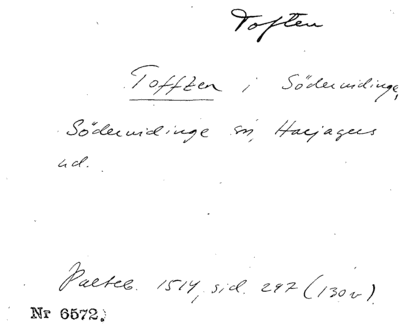 Toften
Tofften i Södervidinge,
Södervidinge sn, Harjagers
hd.
Palteb. 1514, sid. 297 (130v).
Nr 6572.